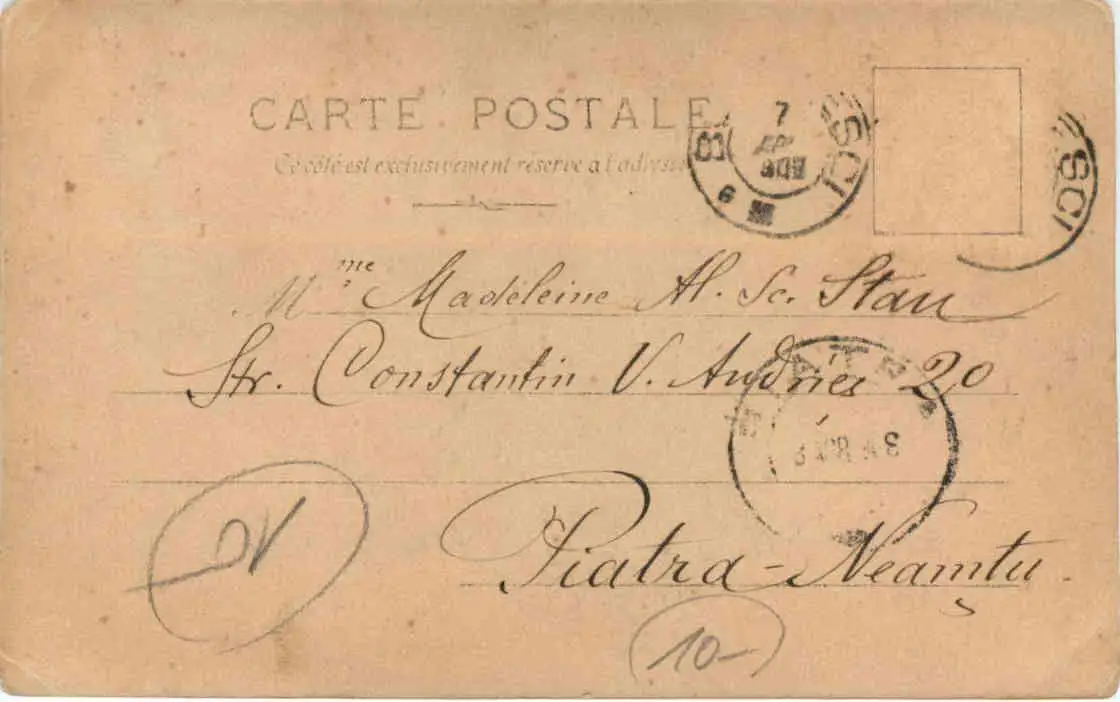 CARTE POSTALE
Ce côté est exclusivement réservé a l'adresse
7
903
SCI
SCI
Mme Madéleine Al. Sc. Stau
Str. Constantin V. Andrieș 20
Piatra-Neamțu.
10-